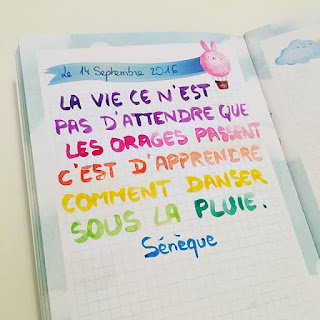 Le 14 Septembre 2016
LA VIE CE N'EST
PAS D'ATTENDRE QUE
LES ORAGES PASSENT
C'EST D'APPRENDRE
COMMENT DANSER
SOUS LA PLUIE.
Sénèque